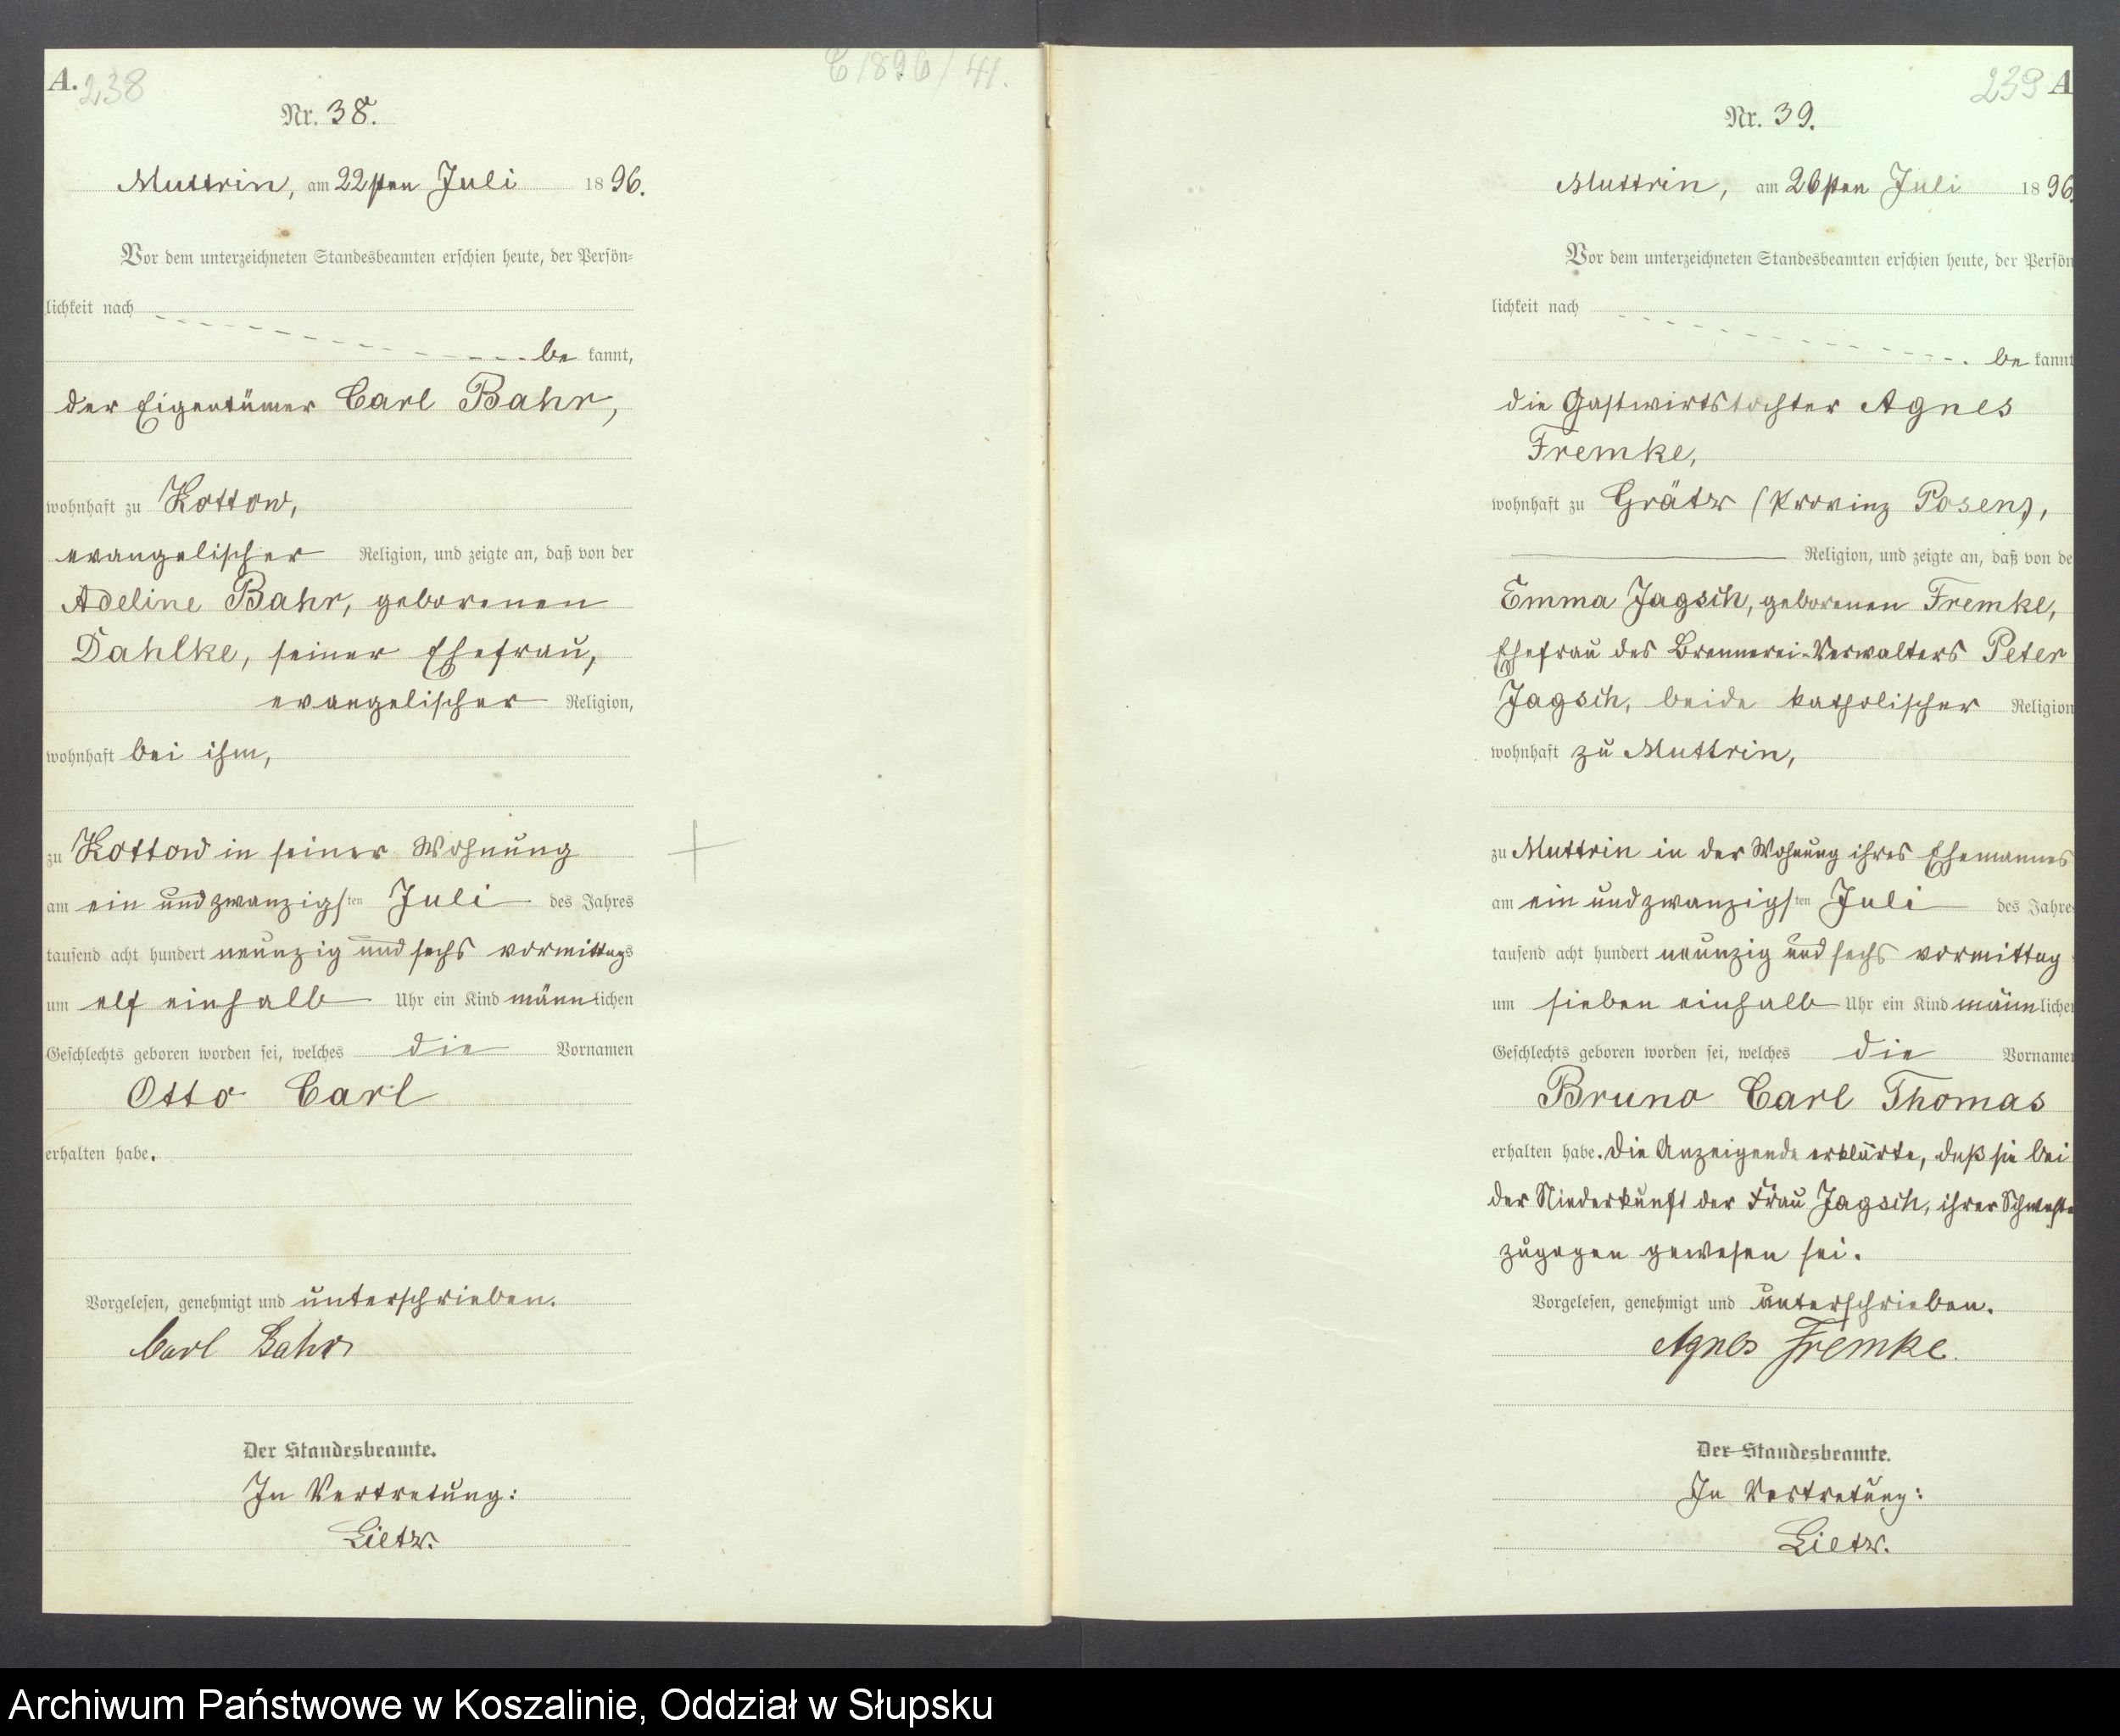 A.
238
E 1896/41.
Nr. 38.
Muttrin, am 22sten Juli 1896.
Vor dem unterzeichneten Standesbeamten erschien heute, der Persön-
lichkeit nach
be kannt,
der Eigentümer Carl Bahr,
wohnhaft zu Kottow,
evangelischer Religion, und zeigte an, daß von der
Adeline Bahr, geborenen
Dahlke, seiner Ehefrau,
evangelischer Religion,
wohnhaft bei ihm,
zu Kottow in seiner Wohnung
am ein und zwanzigsten Juli des Jahres
tausend acht hundert neunzig und sechs vormittags
um elf einhalb Uhr ein Kind männlichen
Geschlechts geboren worden sei, welches die Vornamen
Otto Carl
erhalten habe.
Vorgelesen, genehmigt und unterschrieben.
Carl Bahr
Der Standesbeamte.
In Vertretung:
Lietz.
239 A
Nr. 39.
Muttrin, am 26sten Juli 1896.
Vor dem unterzeichneten Standesbeamten erschien heute, der Persön
lichkeit nach
be kannt
die Gastwirtstochter Agnes
Fremke,
wohnhaft zu Grätz (Provinz Posen),
Religion, und zeigte an, daß von de
Emma Jagsch, geborenen Fremke,
Ehefrau des Brennerei-Verwalters Peter
Jagsch, beide katholischer Religion
wohnhaft zu Muttrin,
zu Muttrin in der Wohnung ihres Ehemannes
am ein und zwanzigsten Juli des Jahre
tausend acht hundert neunzig und sechs vormittag
um sieben einhalb Uhr ein Kind männliche
Geschlechts geboren worden sei, welches die Vorname
Bruno Carl Thomas
erhalten habe. Die Anzeigende erklärte, daß sie bei
der Niederkunft der Frau Jagsch, ihrer Schweste
zugegen gewesen sei.
Vorgelesen, genehmigt und unterschrieben.
Agnes Fremke.
Der Standesbeamte.
In Vertretung:
Lietz.
Archiwum Państwowe w Koszalinie, Oddział w Słupsku